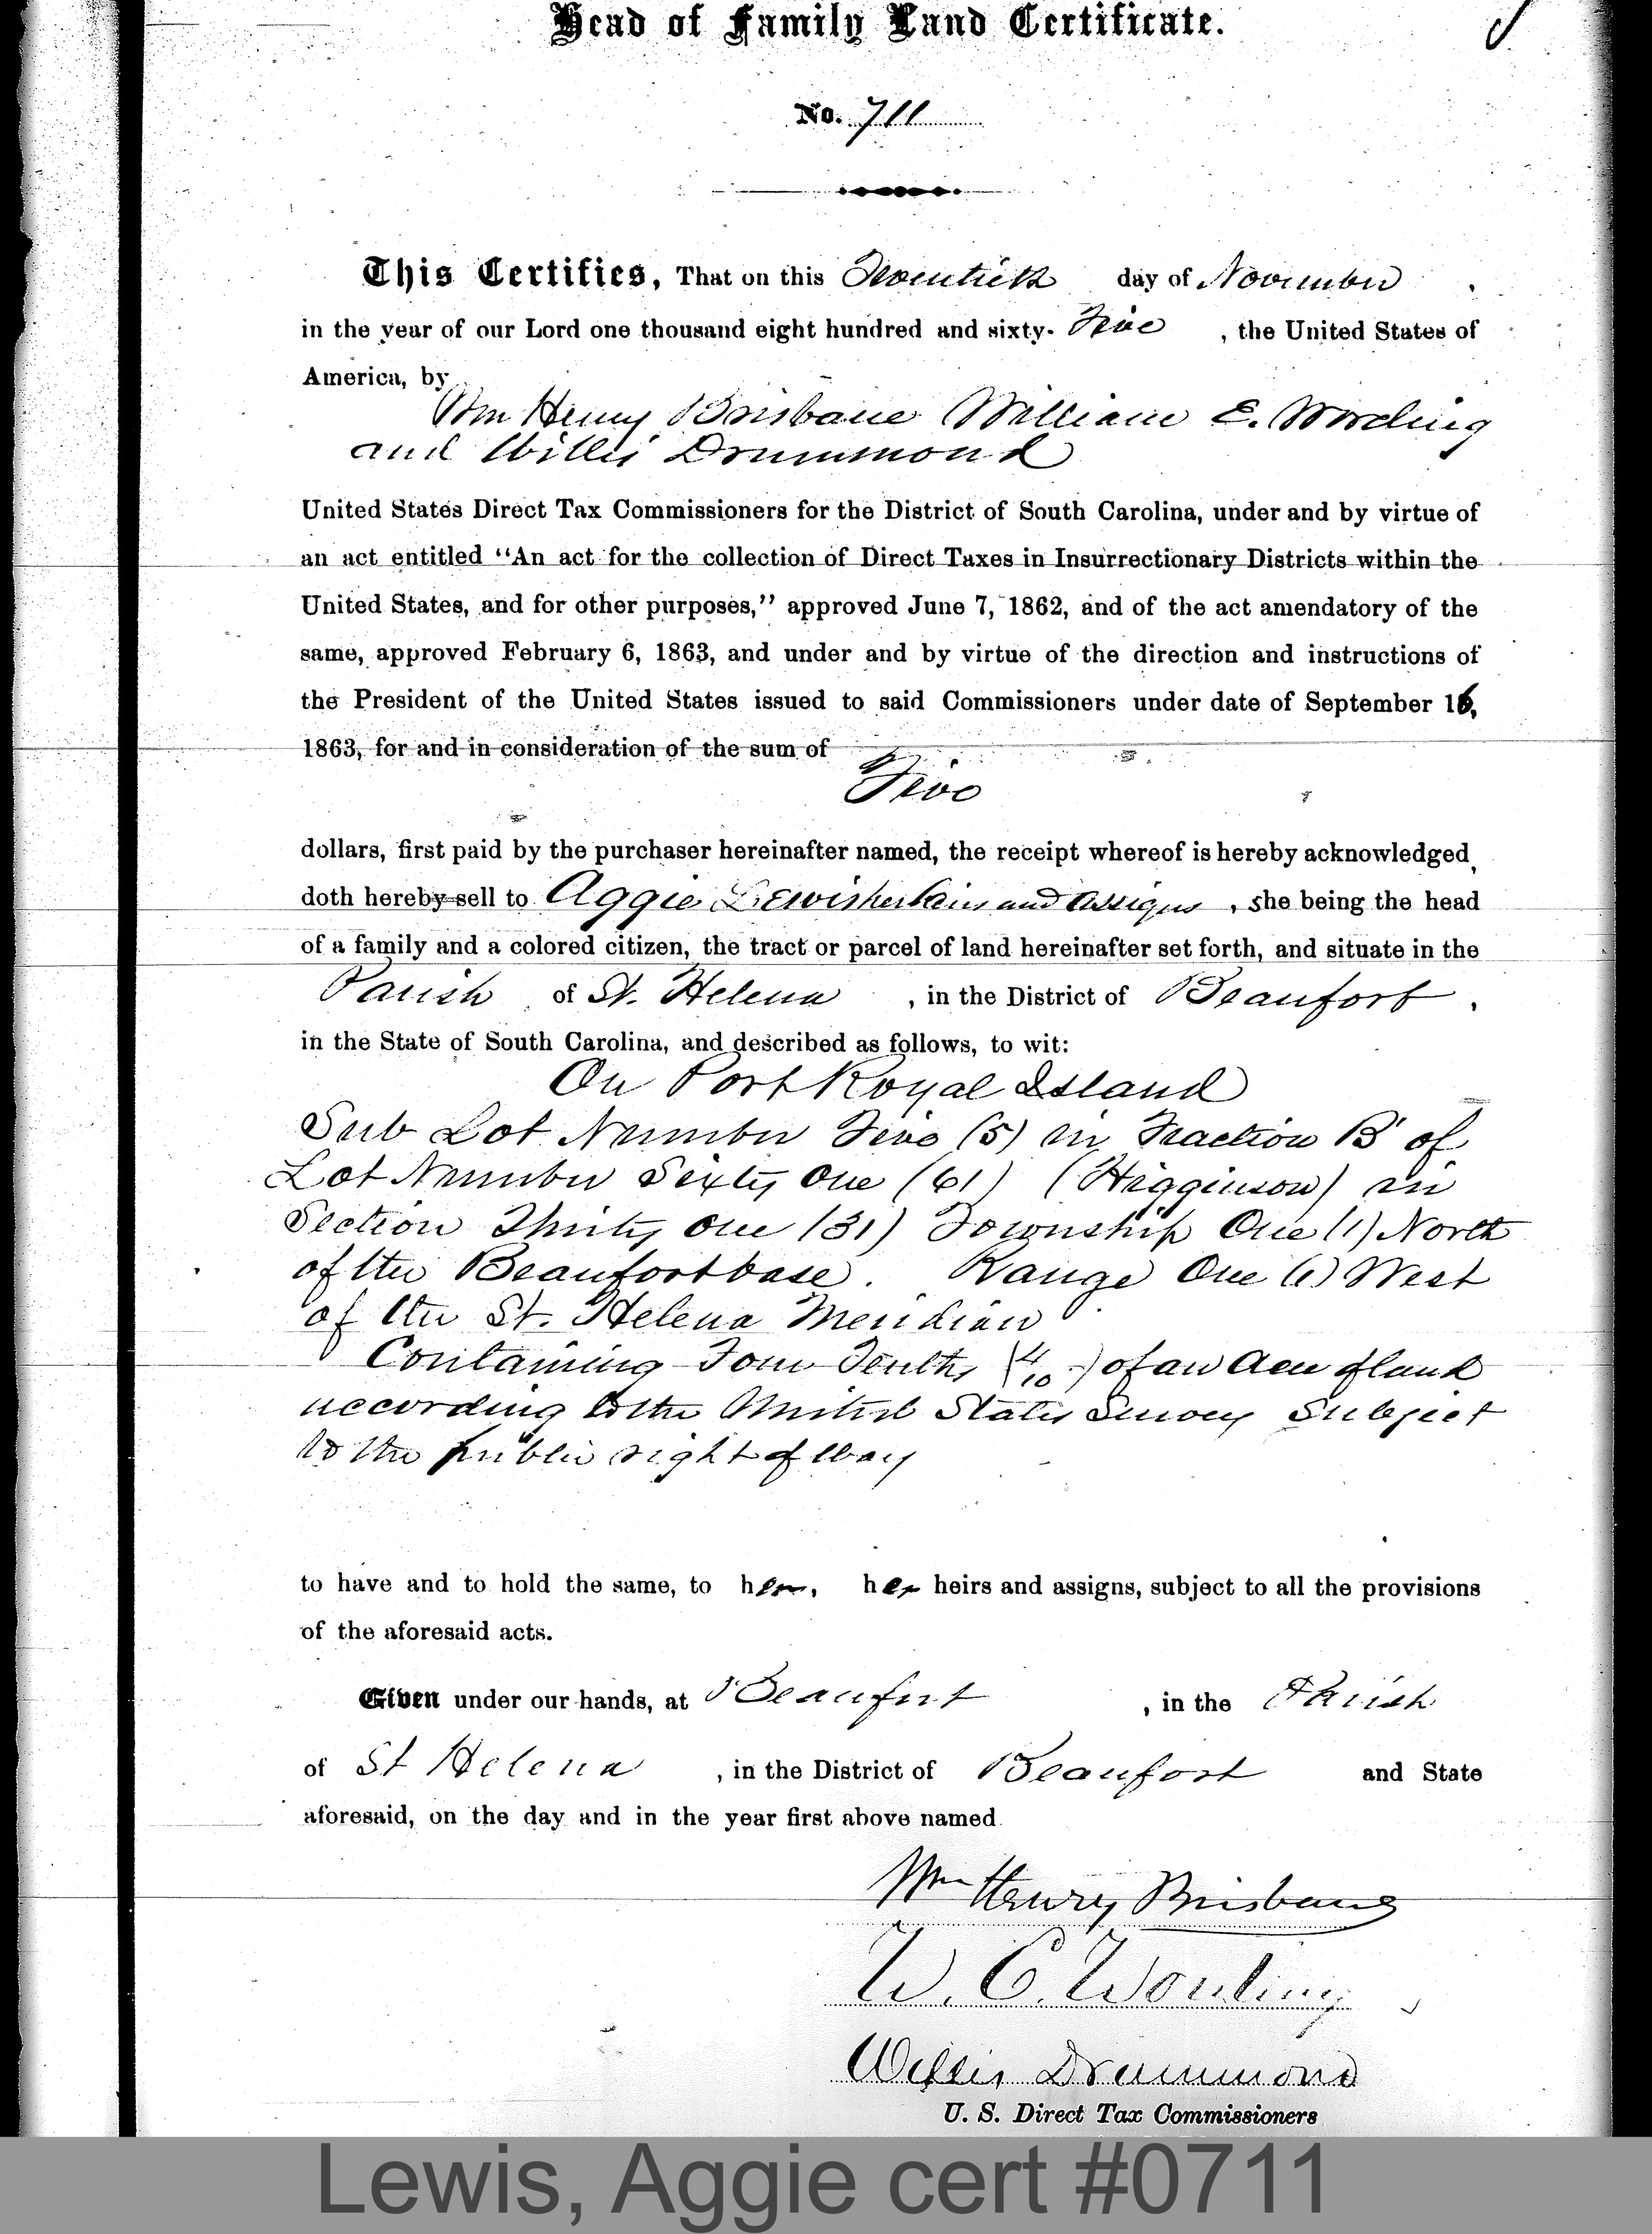 Head of Family Land Certificate.
No. 711
This Certifies, That on this Twentieth day of November,
in the year of our Lord one thousand eight hundred and sixty-Five, the United States of
America, by
Wm Henry Brisbane William E. Wording
and Willis Drummond
United States Direct Tax Commissioners for the District of South Carolina, under and by virtue of
an act entitled "An act for the collection of Direct Taxes in Insurrectionary Districts within the
United States, and for other purposes," approved June 7, 1862, and of the act amendatory of the
same, approved February 6, 1863, and under and by virtue of the direction and instructions of
the President of the United States issued to said Commissioners under date of September 16,
1863, for and in consideration of the sum of
Five
dollars, first paid by the purchaser hereinafter named, the receipt whereof is hereby acknowledged,
doth hereby sell to Aggie Lewis her heirs and assigns, she being the head
of a family and a colored citizen, the tract or parcel of land hereinafter set forth, and situate in the
Parish of St. Helena, in the District of Beaufort,
in the State of South Carolina, and described as follows, to wit:
On Port Royal Island
Sub Lot Number Five (5) in Fraction B of
Lot Number Sixty One (61) (Higginson) in
Section Thirty One (31) Township One (1) North
of the Beaufort base. Range One (1) West
of the St. Helena Meridian
Containing Four Tenths (4/10) of an Acre of land
according to the United States Survey Subject
to the public right of Way
to have and to hold the same, to her, her heirs and assigns, subject to all the provisions
of the aforesaid acts.
Given under our hands, at Beaufort, in the Parish
of St Helena, in the District of Beaufort and State
aforesaid, on the day and in the year first above named
Wm Henry Brisbane
W. E. Wording
Willis Drummond
U. S. Direct Tax Commissioners
Lewis, Aggie cert #0711